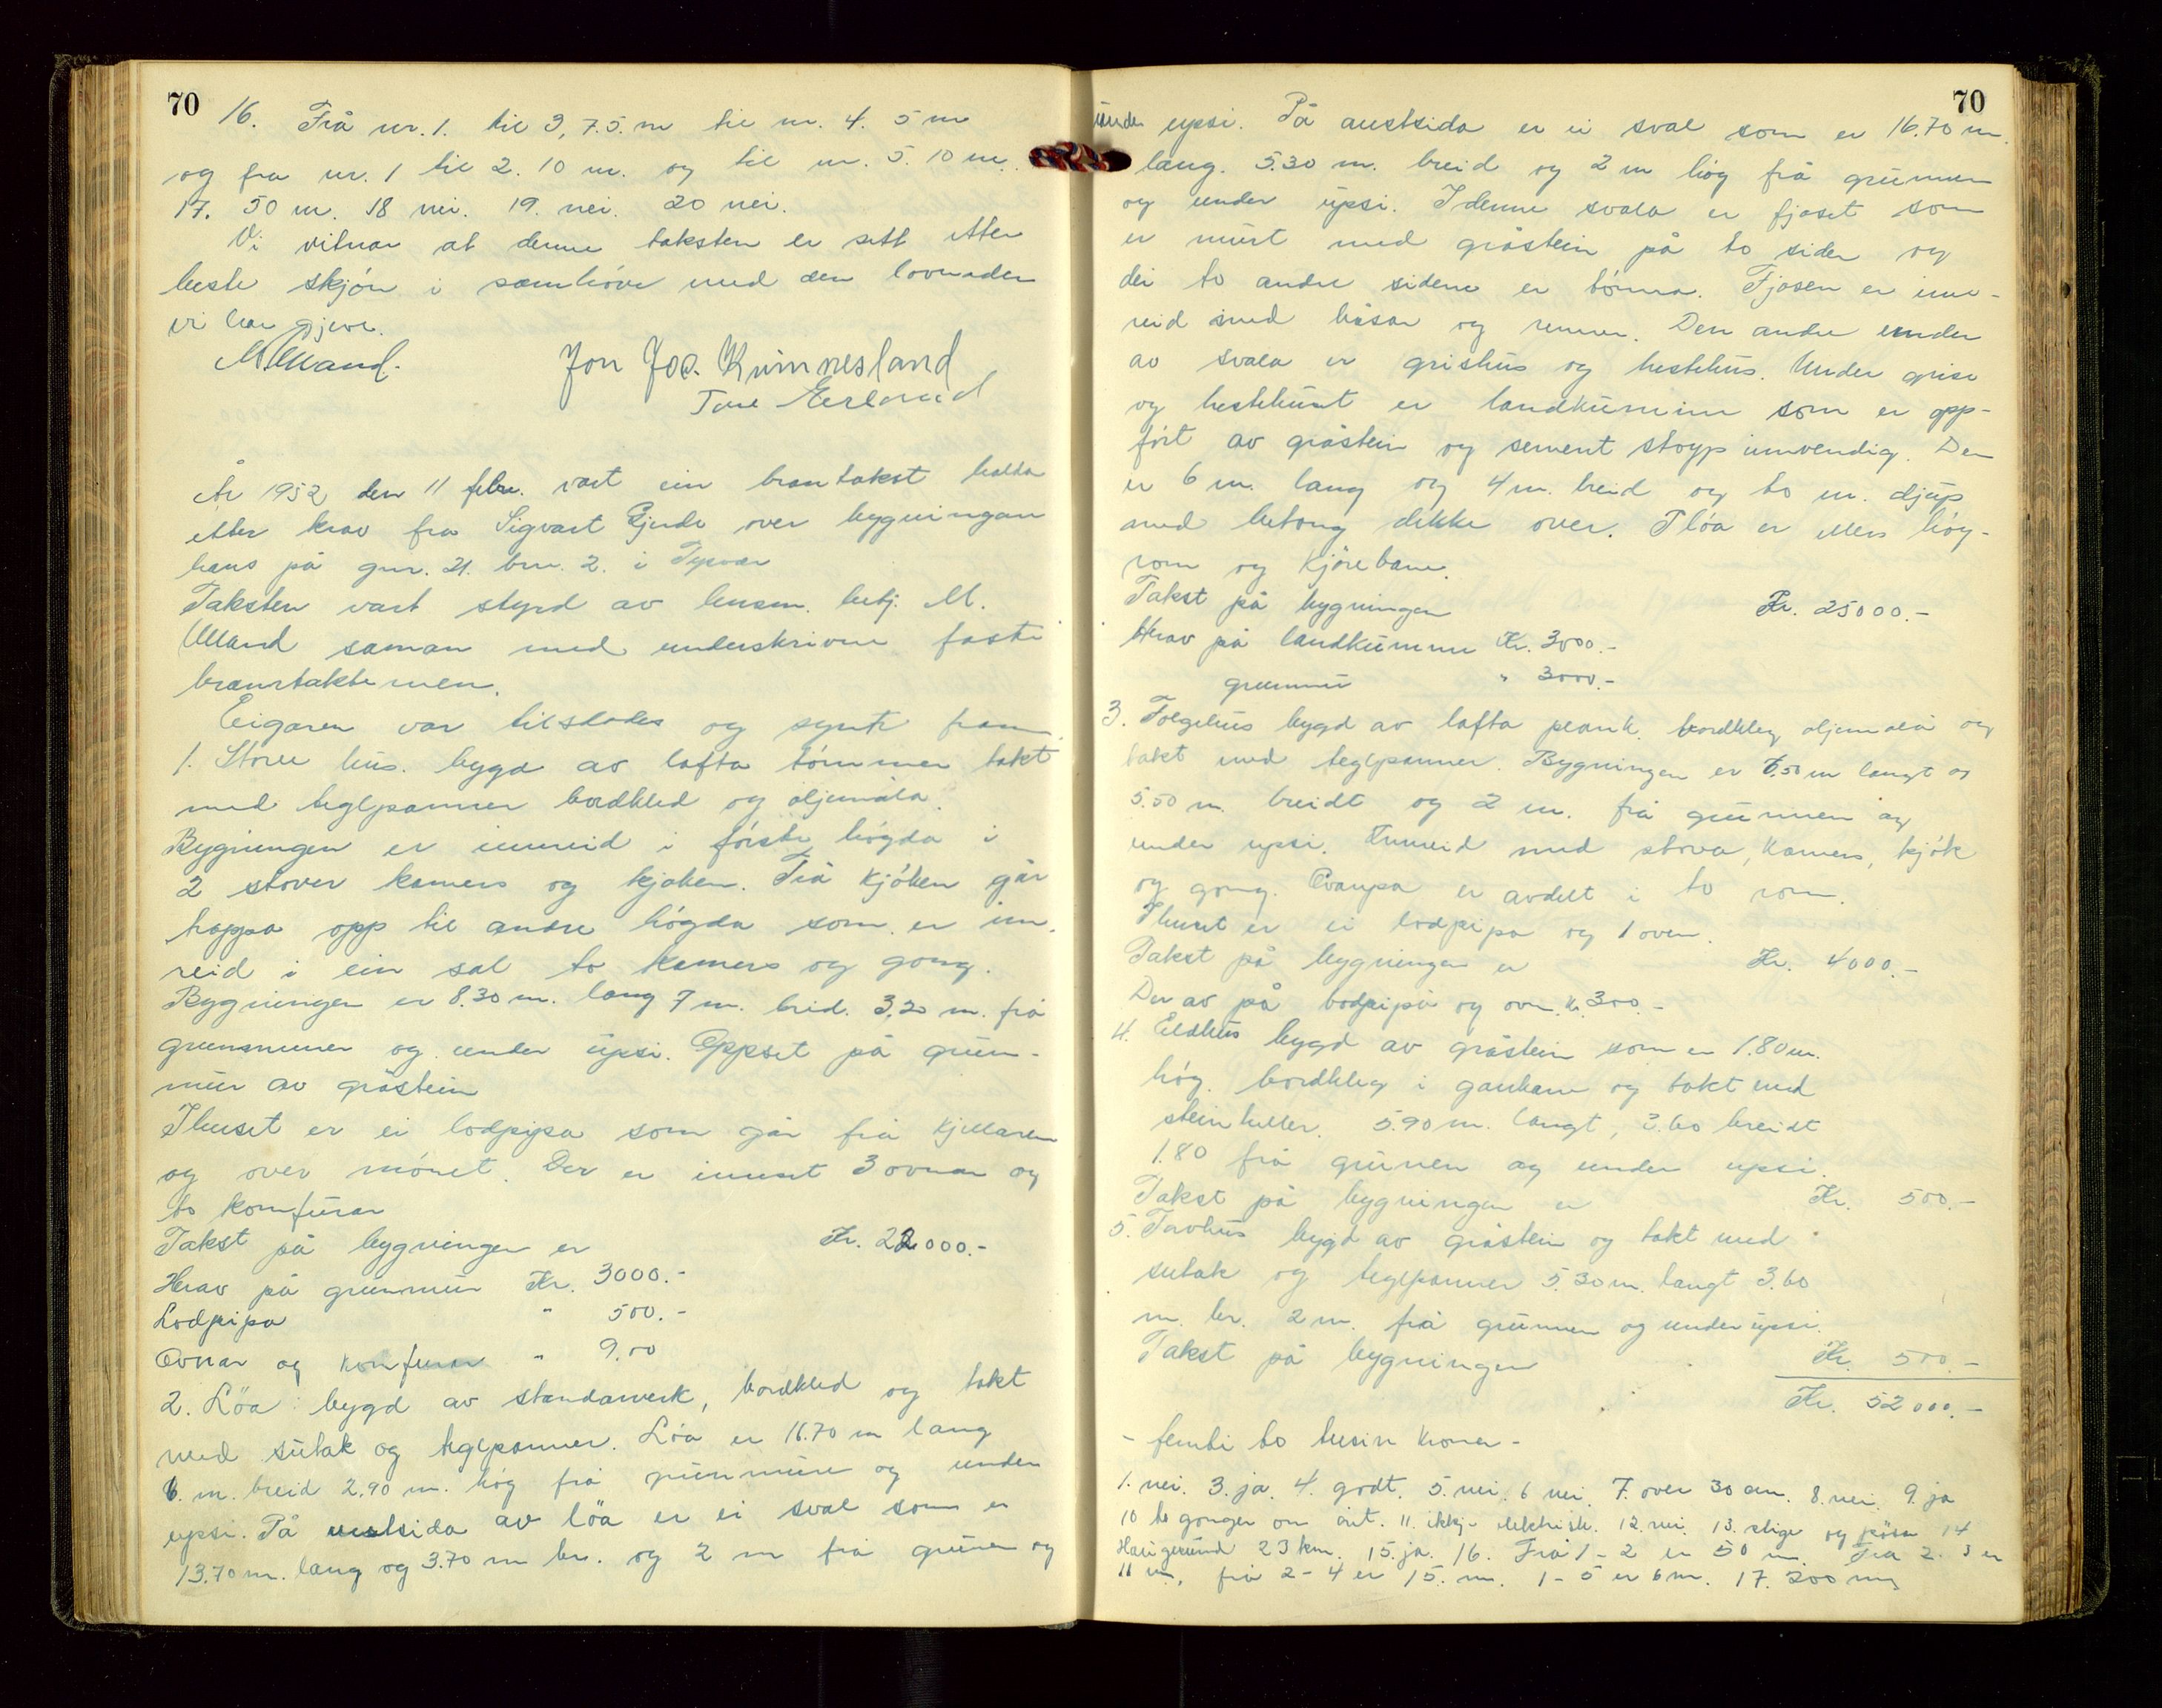 70
16. Frå nr. 1. til 3, 7.5. m til nr. 4. 5 m
og fra nr. 1 til 2. 10 m. og til nr. 5. 10 m.
17. 50 m. 18 nei. 19. nei. 20 nei.
Vi vitnar at denne taksten er sett etter
beste skjön i samhöve med den lovnaden
vi har gjeve.
M. Ulland. Jon Joa. Kvinnesland
Tore
År 1952 den 11 febr. vart ein brantakst halda
etter krav fra Sigvart Gjerde over bygningan
hans på gnr. 21. brn. 2. i Tysvær
Taksten vart styrd av lensm. betj. M.
Ulland saman med underskrivne faste
branntaktsmen.
Eigaren var tilstades og synte fram
1. Store hus. bygd av lafta tömmer takt
med teglpanner bordkled og oljemåla.
Bygningen er innreid i förste högda i
2 stover kamers og kjøken. Frå kjöken går
trappa opp til andre högda som er inn.
reid i ein sal to kamers og gong.
Bygningen er 8.30 m. lang 7 m. breid. 3.20 m. frå
grunnmuren og under upsi. Oppset på grun-
mur av gråstein
I huset er ei lodpipa som går frå kjellaren
og over mönet. Der er innsat 3 ovnar og
to komfurar
Takst på bygningen er Kr. 22000.-
Herav på grunnmur Kr. 3000.-
Lodpipa " 500.-
Ovnar og komfurar " 9.00
2. Löa bygd av standarverk, bordkled og takt
med sutak og teglpanner. Löa er 16.70 m lang
6. m. breid 2.90 m. hög frå grunnmuren og under
upsi. På vestsida av löa er ei sval som er
13.70 m. lang og 3.70 m br. og 2 m frå grunen og
70
under upsi. På austsida er ei sval som er 16.70 m.
lang. 5.30 m. breid og 2 m hög frå grunnen
og under upsi. I denne svala er fjoset som
er murt med gråstein på to sider og
dei to andre sidene er tömra. Fjosen er inn-
reid med båsar og renner. Den andre enden
av svala er grishus og hestehus. Under grise
og hestehuset er landkummen som er opp-
fört av gråstein og sement stöyp innvendig. Den
er 6 m. lang og 4 m. breid og to m. djup
med betong dekke over. I löa er ellers höy-
rom og kjörebane.
Takst på bygningen Kr. 25000.-
Herav på landkumme Kr. 3000.-
grunmur " 3000.-
3. Folgehus bygd av lafta plank. bordkleg oljemåla og
takt med teglpanner. Bygningen er 7.50 m langt og
5.50 m. breidt og 2 m. frå grunnen og
under upsi. Innreid med stova, kamers, kjök
og gong. Ovanpa er avdelt i to rom.
I huset er ei lodpipa og 1 oven.
Takst på bygningen er Kr. 4000.-
Der av på lodpipa og ovn. kr. 300.-
4. Eldhus bygd av gråstein som er 1.80 m.
hög. bordkleg i gavlane og takt med
steinheller. 5.90 m. langt, 3.60 breidt
1.80 frå grunen og under upsi.
Takst på bygningen er Kr. 500.-
5. Tavhus bygd av gråstein og takt med
sutak og teglpanner 5.30 m. langt 3.60
m. br. 2 m. frå grunnen og under upsi.
Takst på bygningen Kr. 500.-
Kr. 52000.-
- femti to tusin kroner -
1. nei. 3. ja. 4. godt. 5. nei. 6 nei. 7. over 30 cm. 8. nei. 9. ja
10 to gonger om året. 11. ikkje elektrisk. 12. nei. 13. stige og pösa 14
Haugesund 23 km. 15. ja. 16. Frå 1-2 er 50 m. Fra 2. 3 er
11 m. frå 2-4 er 15. m. 1-5 er 6 m. 17. 200 m